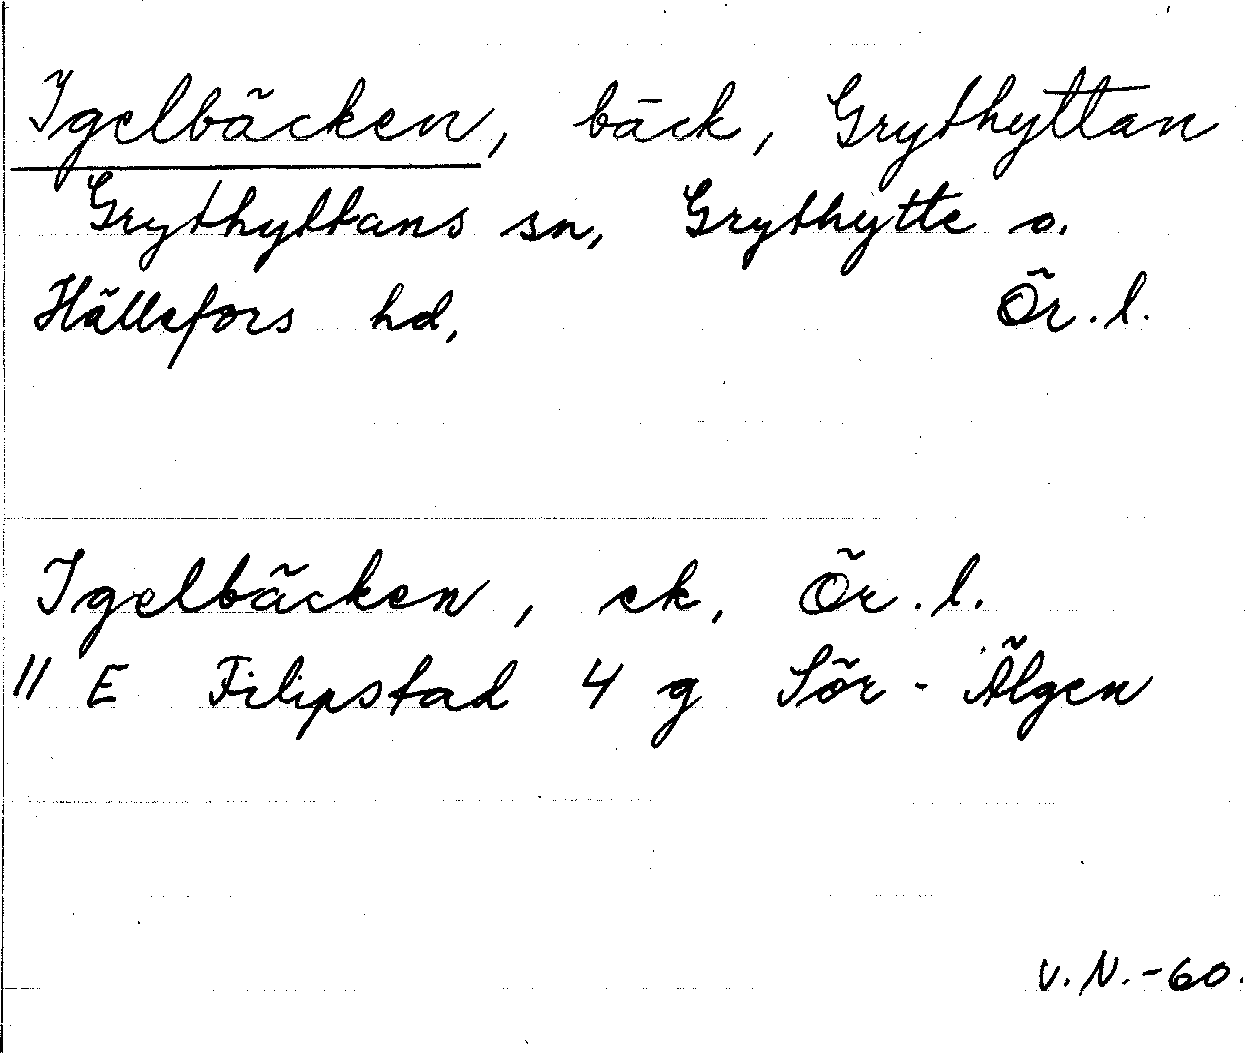 Igelbäcken, bäck, Grythyttan
Grythyttans sn, Grythytte o.
Hällefors hd, Ör. l.
Igelbäcken, ek, Ör. l.
11 E Filipstad 4 g Sör-Älgen
V. N. -60.